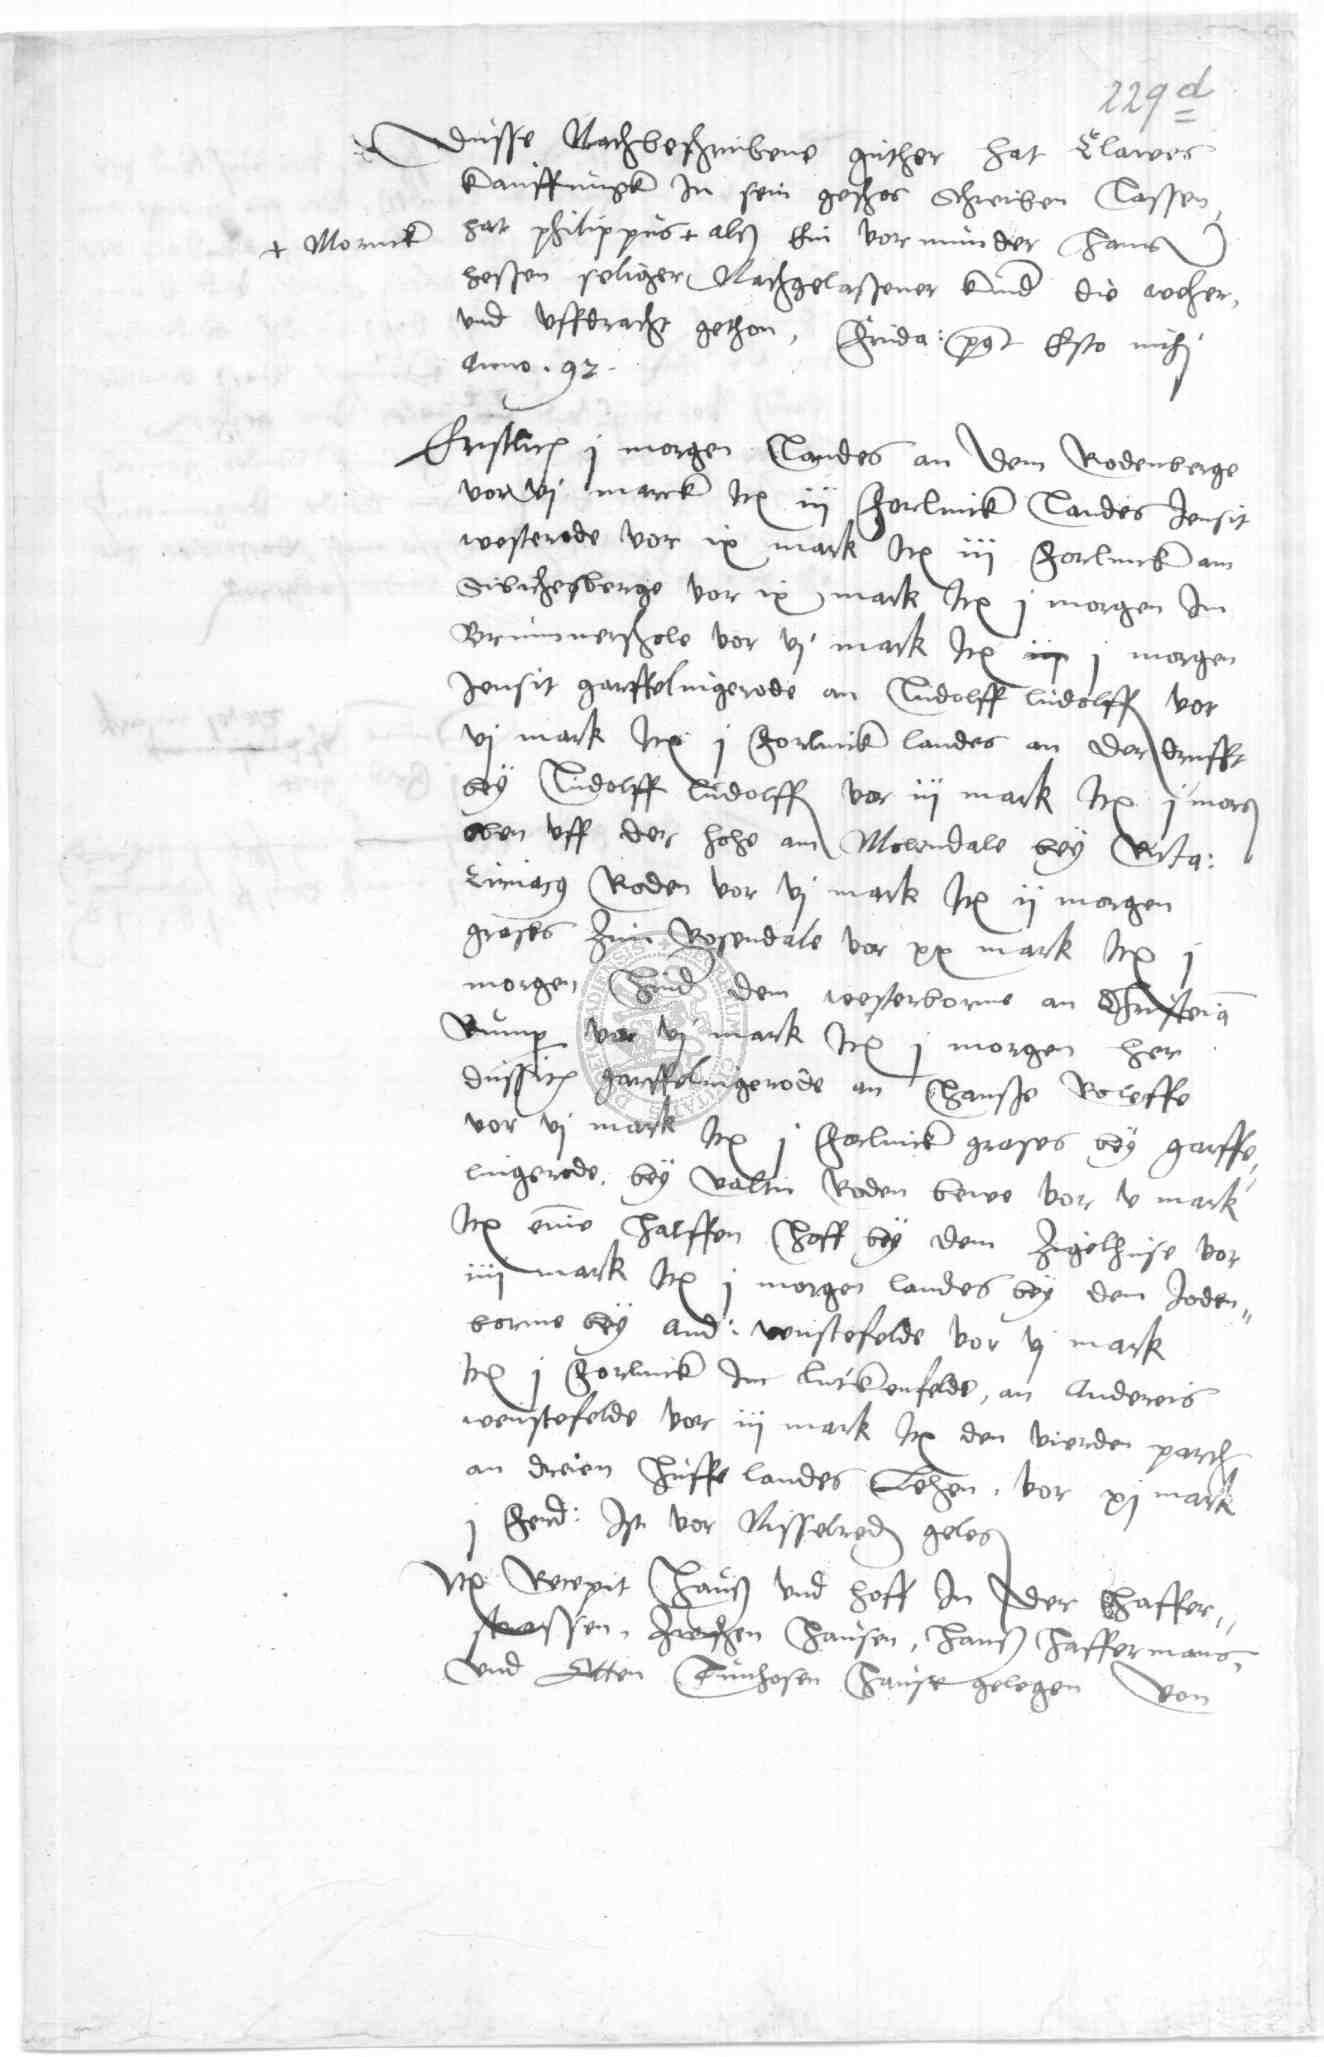 229 d
Dusse Nachbeschriebene guther hat Clawes
Kauffungk In sein geschos Schreiben Lassen,
hat philippus + als Ein vormunder Hans
+ Mornick
Hessen seliger Nachgelassener kind die weher,
vnd vffdracht gethon, Frida: post Esto mihi
Anno . 97 .
Erstlich j morgen Landes an dem Rodenberge
vor vj marck Item iij Forlinck Landes Jensit
westerode vor ix mark Item iij Forlinck am
Sivichesberge vor ix mark Item j morgen Im
Brummershole vor vj mark Item iij j morgen
Jensit garffelngerode an Ludolff ludolff vor
vj mark Item j Forlinck landes an der drufft
bey Ludolff Ludolff vor iij mark Item j morg
oben vff der hohe am Molendale bey
Ciriacus Roden vor vj mark Item ij morgen
grases Zum Rosendale vor xx mark Item j
morgen Hind dem westerborne an
Rump vor vj mark Item j morgen her
dussit garffelngerode an Hansse Roleffe
vor vj mark Item j Forlinck grases bey garffe,
lingerode, bey Valtin Roden bewe vor v mark
Item eine halffen Hoff bey dem Zigelhuse vor
iiij mark Item j morgen landes bey dem Joden"
borne bey And: wenstefelde vor vj mark
Item j Forlinck Im lutkenfelde, an Andereis
weinstefelde vor iij mark Item den vierden parth
an dreien Huffe landes Lehen, vor xj mark
j Ferd: Ist vor Nisselred geles
Item Recepit Hauß vnd hoff In der Haffer"
strassen, Zwischen Hausen, Hans Haffermans,
vnd Otten Tunhosen Hause gelegen von